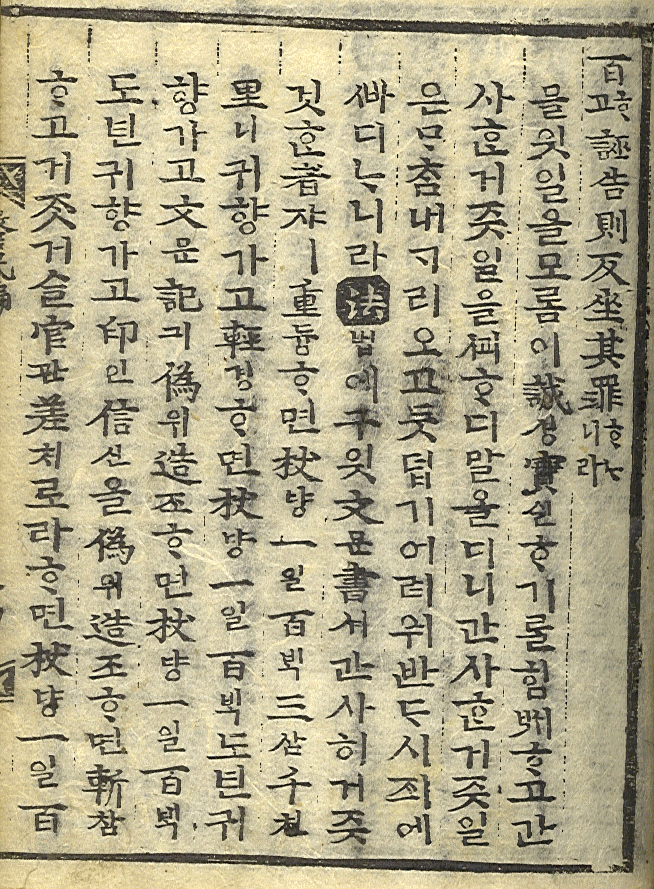 百ᄒᆞ고誣告則反坐其罪ᄒᆞᄂᆞ니라
믈읫일을모롬이誠셩實실ᄒᆞ기ᄅᆞᆯ힘ᄡᅥᄒᆞ고간
사ᄒᆞᆫ거즛일을ᄒᆞ디말올디니간사ᄒᆞᆫ거즛일
은ᄆᆞᄎᆞᆷ내ᄀᆞ리오고듯덥기어려워반ᄃᆞ시죄에
ᄲᅡ디ᄂᆞ니라法법에구읫文문書셔간사히거즛
것ᄒᆞᆫ者쟈ㅣ重듕ᄒᆞ면杖댱一일百ᄇᆡᆨ三삼千쳔
里니귀향가고輕경ᄒᆞ면杖댱一일百ᄇᆡᆨ도년귀
향가고文문記긔僞위造조ᄒᆞ면杖댱一일百ᄇᆡᆨ
도년귀향가고印인信신을僞위造조ᄒᆞ면斬참
ᄒᆞ고거즛거슬官관差치로라ᄒᆞ면杖댱一일百